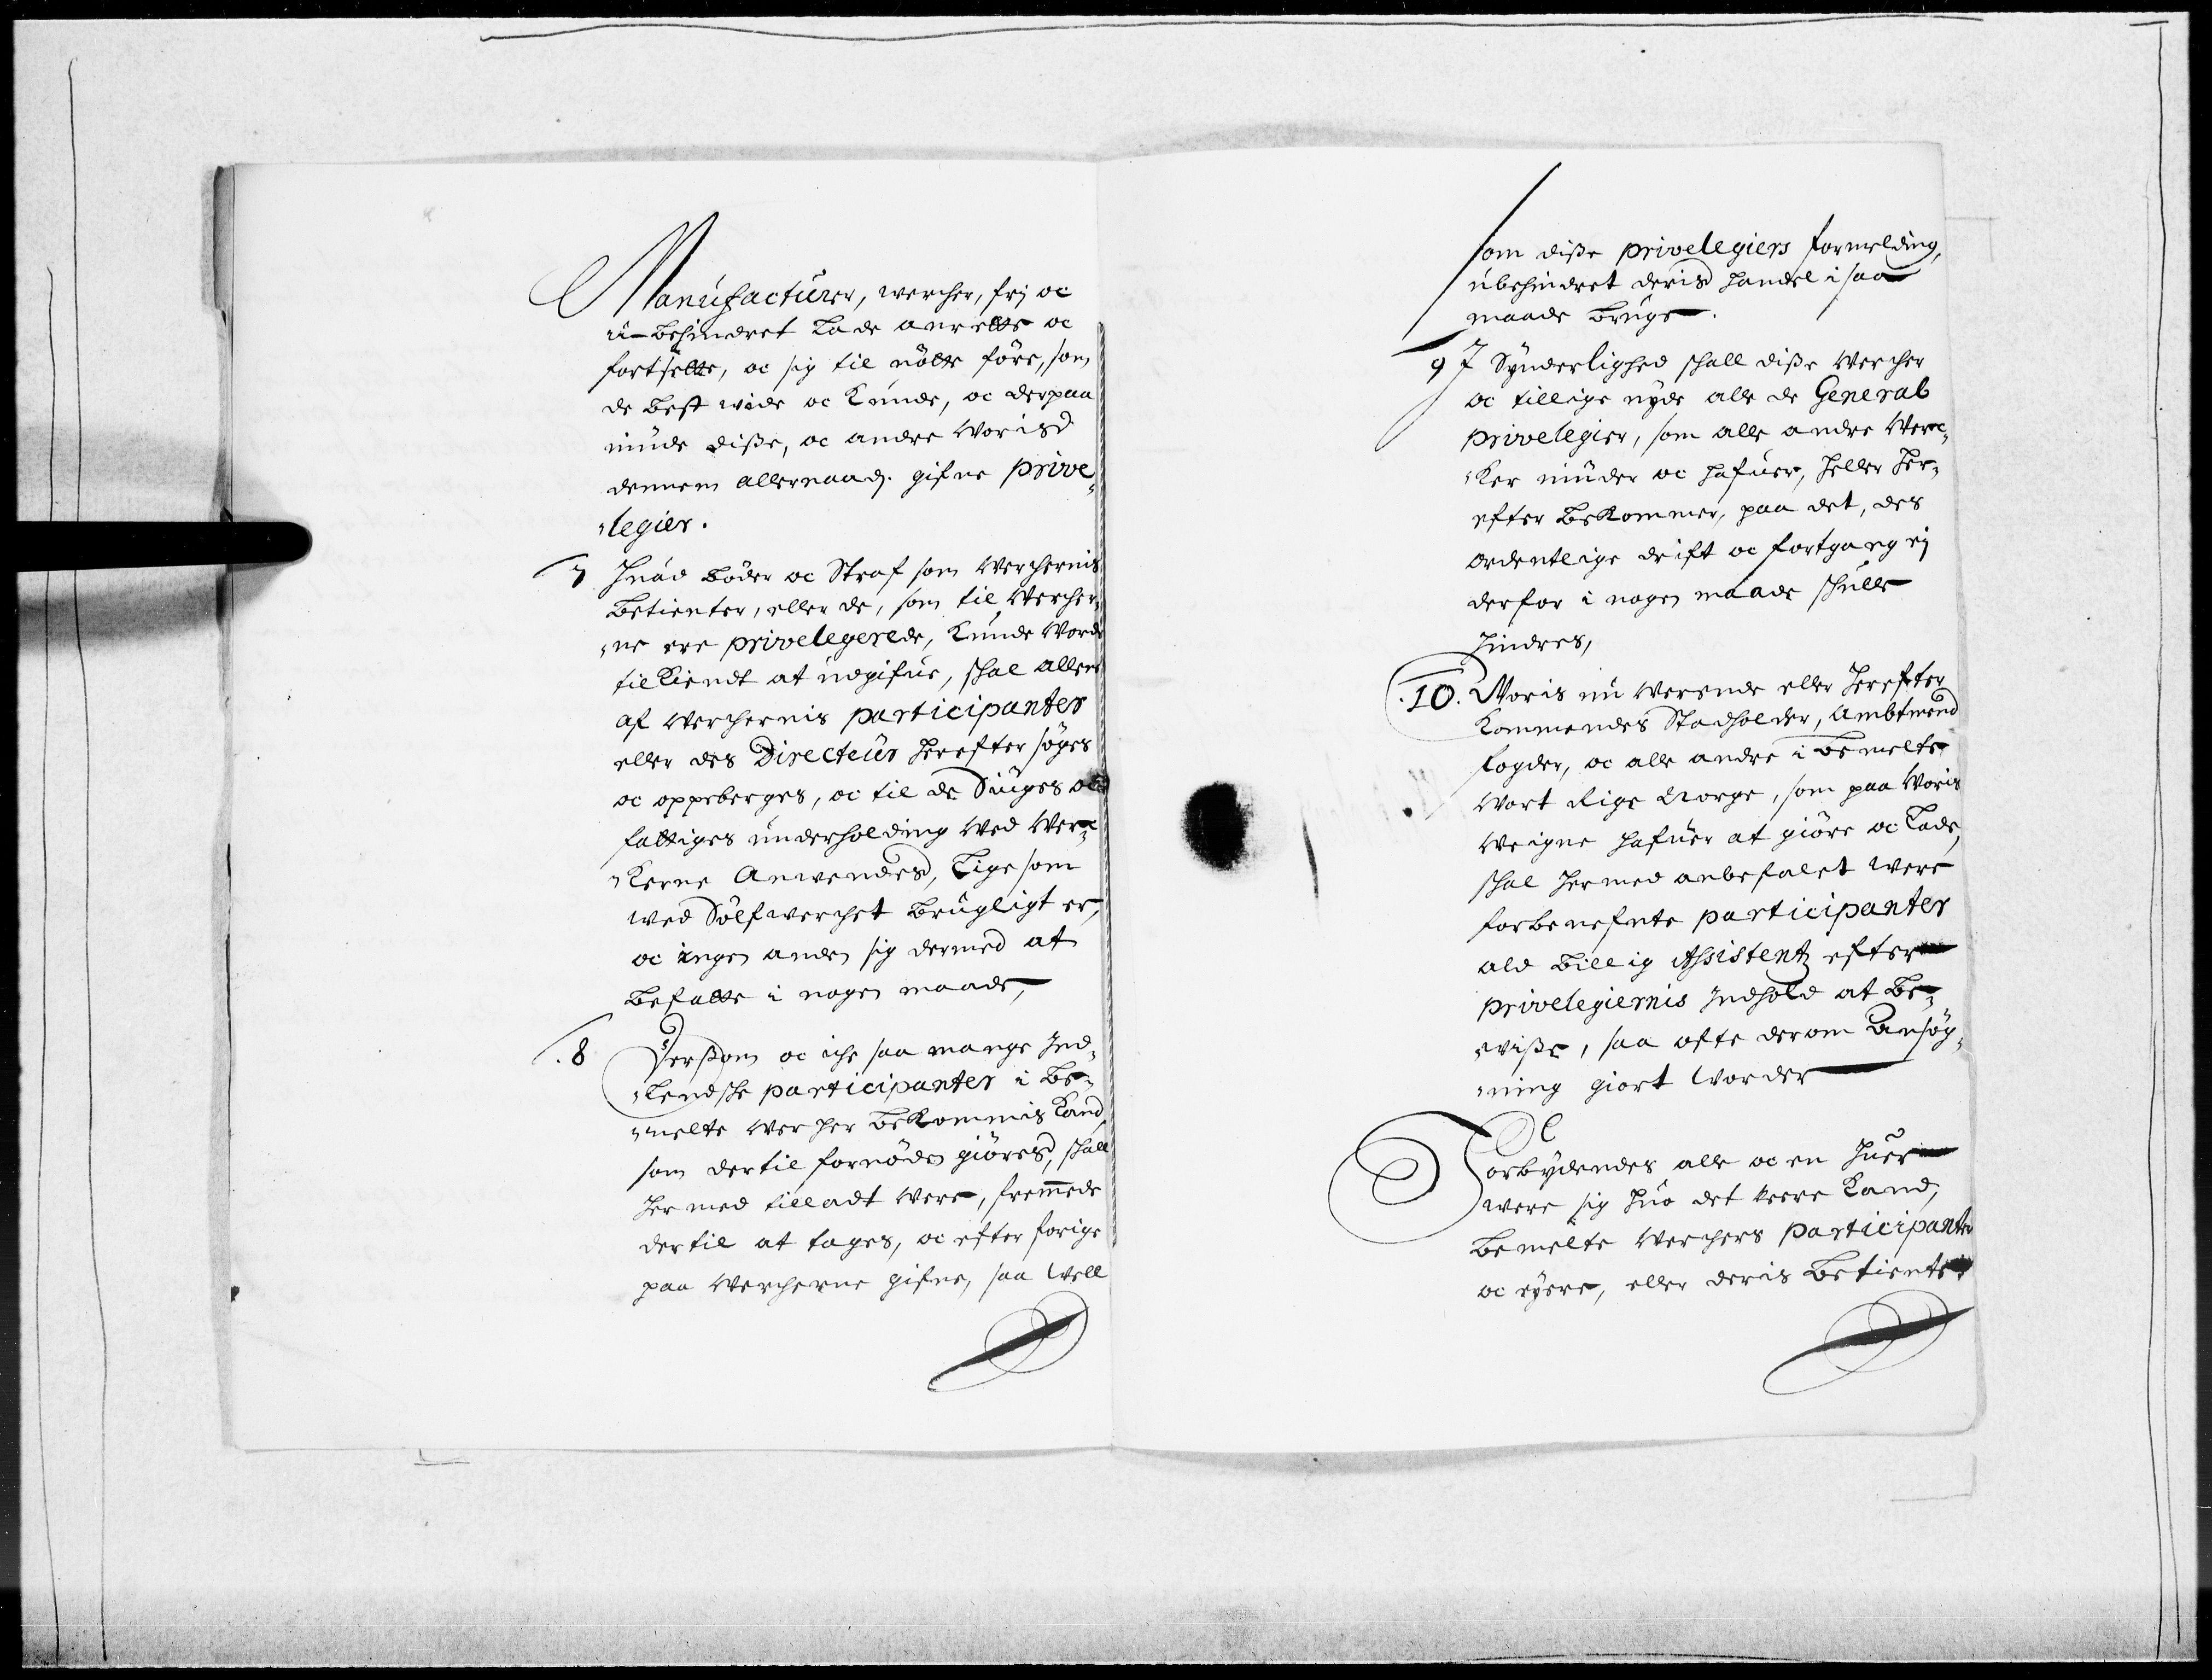 Manufacturer, wercher, frj oc
u-behindret lade anrette oc
fortsette, oc sig til nötte före, som
de best wide oc kunde, oc derpaa
niude diße, oc andre Worisd
dennem allernaadj. gifne prive¬
legier.
7 Huad böder oc Straf som Werchernis
betienter, eller de, som til Wercher¬
ne ere privelegerede, kunde Worde
tilkiendt at udgifue, skal allene
af Werchernis participanter
eller des Directeur herefter söges
oc oppeberges, oc til de Siuges oc
fattiges underholding wed Wer¬
kerne Anwendes, lige som
wed Sölfwerchet brugligt er,
oc ingen anden sig dermed at
befatte i nogen maade,
8 Dersom oc iche saa mange Ind¬
lendske participanter i be¬
melte Wercher bekommis kand
som dertil fornöden giöres, skall
her med tilladt were, fremmede
dertil at tages, oc efter forige
paa Wercherne gifne, saa well
som diße privelegiers formelding,
ubehindret deris handel i saa
maade bruge.
9 I Synderlighed skall diße Wercher
oc tillige nyde alle de General
privelegier, som alle andre Wer¬
ker niuder oc hafuer, heller her¬
efter bekommer, paa det, des
ordentlige drift oc fortgang ej
derfor i nogen maade skulle
hindres,
10. Woris nu Werende eller herefter
kommendes Stadholder, Ambtmend
fogder, oc alle andre i bemelte
Wort Rige Norge, som paa Woris
Weigne hafuer at giöre oc lade,
skal hermed anbefalet were
forbenefnte participanter
ald billig Assistentz efter
privelegiernis Indhold at be¬
wiße, saa ofte derom Ansög¬
ning giort Worder
Forbydendes alle oc en huer
were sig huo det were kand,
bemelte Werchers Participanter
oc eyere, eller deris betiente